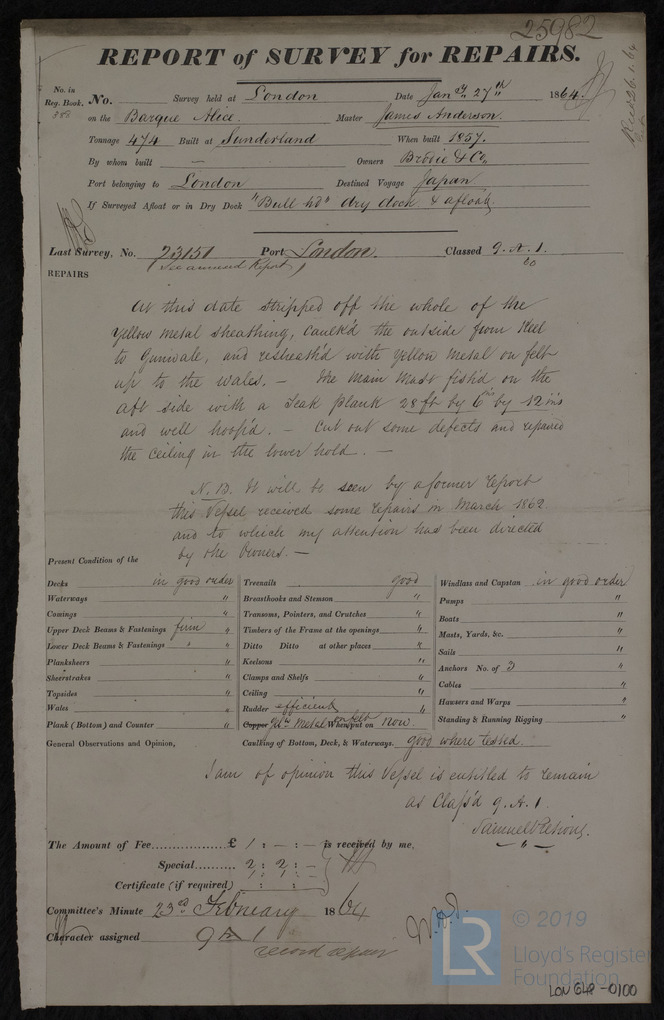 25982
REPORT of SURVEY for REPAIRS.
No. in Reg. Book. 383 No. Survey held at London Date Jany. 27th 1864.
on the Barque Alice. Master James Anderson.
Tonnage 474 Built at Sunderland When built 1857.
By whom built — Owners Brodie & Co,
Port belonging to London Destined Voyage Japan
If Surveyed Afloat or in Dry Dock "Bull Hd" dry dock & afloat.
Last Survey, No. 23151 Port London. Classed 9. A. 1.
(See annexed Report) 60
REPAIRS
At this date stripped off the whole of the
Yellow metal sheathing, Caulk'd the outside from Keel
to Gunwale, and resheath'd with yellow metal on felt
up to the wales. — The Main Mast fish'd on the
aft side with a Teak plank 28 ft by 6 ins by 12 ins
and well hoop'd. — Cut out some defects and repaired
the Ceiling in the lower hold. —
N.B. It will be seen by a former report
this Vessel received some repairs in March 1862
and to which my attention has been directed
by the Owners. —
Present Condition of the
Decks in good order Treenails good Windlass and Capstan in good order
Waterways " Breasthooks and Stemson " Pumps "
Comings " Transoms, Pointers, and Crutches " Boats "
Upper Deck Beams & Fastenings firm " Timbers of the Frame at the openings " Masts, Yards, &c. "
Lower Deck Beams & Fastenings " " Ditto Ditto at other places " Sails "
Planksheers " Keelsons " Anchors No. of 3 "
Sheerstrakes " Clamps and Shelfs " Cables "
Topsides " Ceiling " Hawsers and Warps "
Wales " Rudder efficient " Standing & Running Rigging "
Plank (Bottom) and Counter " Copper Yellw Metal on felt When put on now.
General Observations and Opinion, Caulking of Bottom, Deck, & Waterways. good where tested.
I am of opinion this Vessel is entitled to remain
as Class'd 9. A. 1.
Samuel Pretious.
The Amount of Fee £ 1 : — : — is received by me,
Special 2 : 2 : —
Certificate (if required) : :
Committee's Minute 23rd February 1864
Character assigned 9 A 1
record repair
© 2019
LR Lloyd's Register
Foundation
LON 648-0100